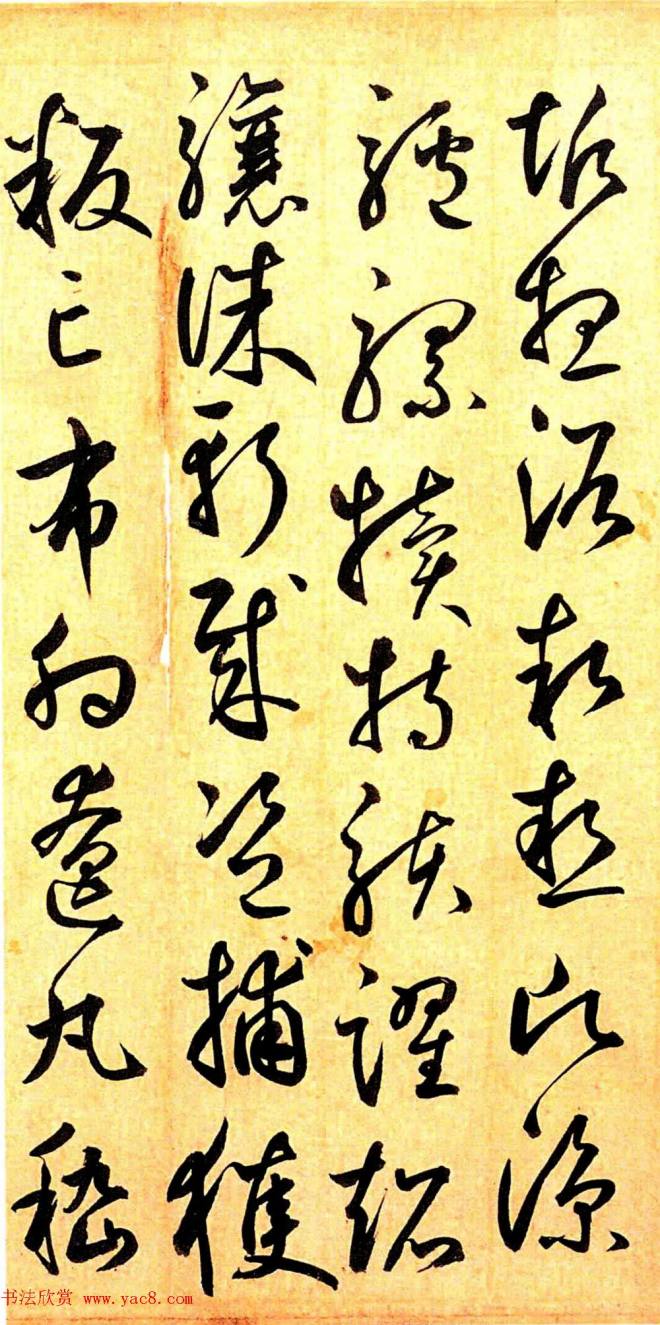 垢想浴執熱願涼
驢騾犢特駭躍超
驤誅斬賊盜捕獲
叛亡布射遼丸嵇
书法欣赏 www.yac8.com